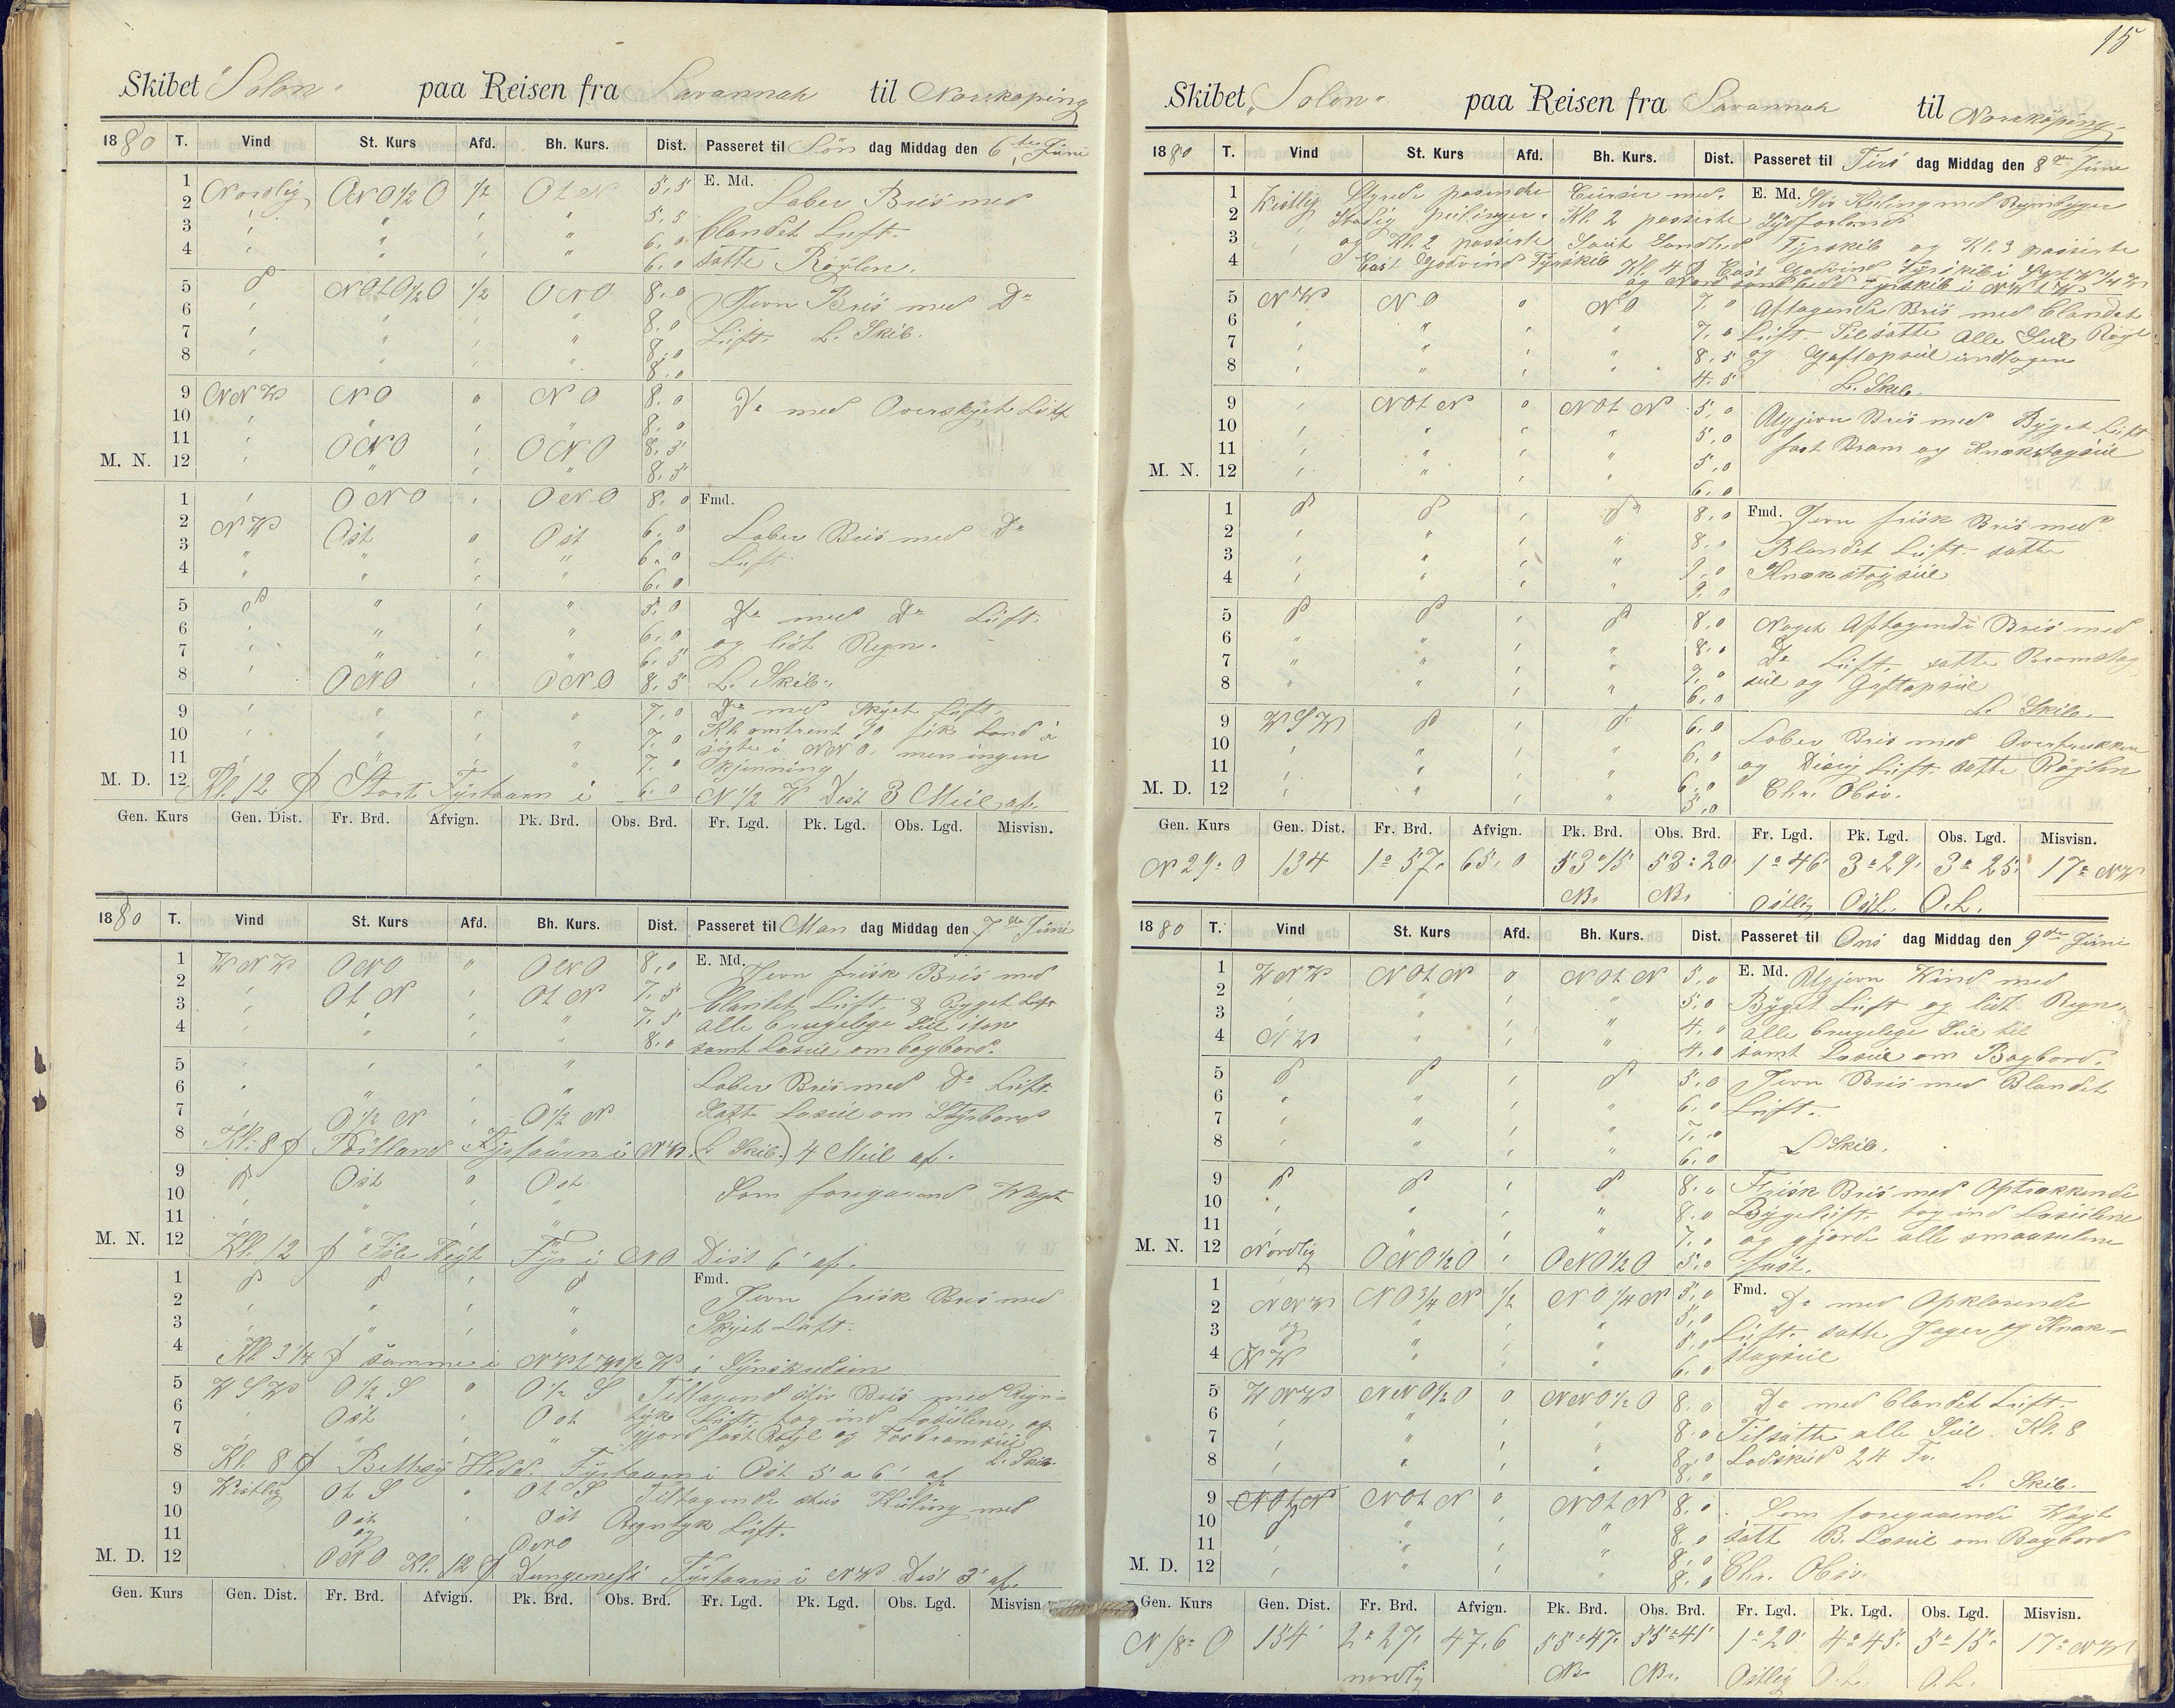 Skibet "Solon" paa Reisen fra Savannah til Norrköping
1880 T. Vind St. Kurs Afd. Bh. Kurs. Dist. Passeret til Søn dag Middag den 6te Juni
1 Nordlig ONO 1/2 O 1/2 O t N 5,5 E. Md. Laber Bris med
2 " " " " 5,5 blandet Luft.
3 " " " " 6,0 satte Røylen.
4 " " " " 6,0
5 do NOtO 1/2 O 1/2 ONO 8,0 Jevn Bris med Do
6 " " " " 8,0 Luft. L. Skib.
7 " " " " 8,0
8 " " " " 8,0
9 NNW NO " NO 8,0 Do med Overskyet Luft
10 " " " " 8,0
11 " ONO " ONO 8,5
M. N. 12 " " " " 8,5
1 " ONO " ONO 8,0 Fmd.
2 NW Ost " Ost 6,0 Laber Bris med Do
3 " " " " 6,0 Luft
4 " " " " 6,0
5 do " " " 5,0 Do med Do Luft.
6 " " " " 6,0 og lidt Regn.
7 " " " " 6,5
8 " ONO " ONO 8,5 L. Skib.
9 " " " " 7,0 Do med Skyet Luft.
10 " " " " 7,0 Kl. omtrent 10 fik Land i
11 " " " " 7,0 sigte i NNO, men ingen
kjenning
M. D. 12 Kl. 12 Start Fyrtaarn i 6,0 N 1/2 W Dist 3 Miil af.
Gen. Kurs Gen. Dist. Fr. Brd. Afvign. Pk. Brd. Obs. Brd. Fr. Lgd. Pk. Lgd. Obs. Lgd. Misvisn.
1880 T. Vind St. Kurs Afd. Bh. Kurs. Dist. Passeret til Man dag Middag den 7de Juni
1 WNW ONO " ONO 8,0 E. Md. Jevn frisk Bris med
2 " Ot N " Ot N 7,5 blandet Luft & Byget Luft
3 " " " " 7,5 alle brugelige Seil
4 " " " " 8,0 samt Læseil om bagbord.
5 " " " " Laber Bris med Do Luft.
6 " " " " Satte Læseil om Styrbord
7 " O 1/2 N " O 1/2 N
8 Kl. 8 Portland Fyrtaarn i NW. (L. Skib.) 4 Miil af.
9 do Ost " Ost Som foregaaend Wagt
10 " " " "
11 " " " "
M. N. 12 Kl. 12 Fyr i NO Dist 6' af.
1 do do " do Fmd. Jevn frisk Bris med
2 " " " " Skyet Luft.
3 " " " "
4 Kl. 3 1/4 samme i
5 WSW O 1/2 S " O 1/2 S Tiltagend stiv Bris med Regn-
6 " Ost " Ost tyk Luft. tog ind Læseilene, og
7 " " " " gjord fast Røyl og Forbramseil
8 Kl. 8 Fyrtaarn i Ost 5 a 6' af L. Skib.
9 Westlig Ot S " Ot S Tiltagende stiv Kuling med
10 Ost " Ost Regntyk Luft.
11 og ONO
M. D. 12 ONO Kl. 12 Dungenesh Fyrtaarn i NW Dist 3' af.
Gen. Kurs Gen. Dist. Fr. Brd. Afvign. Pk. Brd. Obs. Brd. Fr. Lgd. Pk. Lgd. Obs. Lgd. Misvisn.
15
Skibet "Solon" paa Reisen fra Savannah til Norrköping
1880 T. Vind St. Kurs Afd. Bh. Kurs. Dist. Passeret til Tirs dag Middag den 8de Juni
1 Westlig Styrede pasende Curser med E. Md. Stiv Kuling med Regnbyger
2 " Stadig peilinger. Kl. 2 passerte Sydforland
3 " og Kl. 2 passerte Sout Fyrskib og Kl. 3 passerte
4 East Godvind Fyrskib Kl. 4 East Godvind Fyrskib i
og Nord Fyrskib i NWtW
5 NW NO " NO 7,0 Aftagende Bris med blandet
6 " " " " 7,0 Luft. Tilsatte Alle Seil Røyl
7 " " " " 8,5 og Gaftopseil undtagen
8 " " " " 4,5 L. Skib.
9 " NOt N " NOt N 5,0 Ugjevn Bris med Byget Luft
10 " " " " 5,0 fast Bram og Knækstagseil
11 " " " " 5,0
M. N. 12 " " " " 6,0
1 do do " do 8,0 Fmd. Jevn frisk Bris med
2 " " " " 8,0 Blandet Luft. satte
3 " " " " 9,0 Knækstagseil
4 " " " " 9,0
5 do do " do 8,0 Noget Aftagende Bris med
6 " " " " 8,0 Do Luft. satte Bramstag
7 " " " " 7,0 seil og Gaftopseil
8 " " " " 6,0 L. Skib.
9 WSW do " do 6,0 Laber Bris med Overtrukken
10 " " " " 6,0 og Disig Luft. satte Røylen
11 " " " " 6,0 Chr. Obsv.
M. D. 12 " " " " 5,0
Gen. Kurs Gen. Dist. Fr. Brd. Afvign. Pk. Brd. Obs. Brd. Fr. Lgd. Pk. Lgd. Obs. Lgd. Misvisn.
N 29° O 134 1° 57' 65,0 53° 15' 53° 20' 1° 46' 3° 29' 3° 25' 17° NW
NBr NBr. Ostlig Ost. O.L.
1880 T. Vind St. Kurs Afd. Bh. Kurs. Dist. Passeret til Ons dag Middag den 9de Juni
1 WNW NOt N " NOt N 5,0 E. Md. Ugjevn Wind med
2 " " " " 5,0 Byget Luft og lidt Regn.
3 " " " " 4,0 alle brugelige Seil til
4 NW " " " 4,0 samt Læseil om Bagbord.
5 do do " do 5,0 Jevn Bris med Blandet
6 " " " " 6,0 Luft.
7 " " " " 7,0
8 " " " " 6,0 L Skib.
9 do do " do 8,0 Frisk Bris med Optrækkende
10 " " " " 8,0 Bygeluft tog ind Læseilene
11 " " " " 7,0 og gjorde alle smaaseilene
M. N. 12 Nordlig ONO 1/2 O " ONO 1/2 O 5,0 fast.
1 NNW NO 3/4 N 1/2 NO 1/4 N 5,0 Fmd. Do med Opklarende
2 " " " " 5,0 Luft. satte Jager og Knæk-
3 og " " " 5,0 stagseil
4 NW " " " 6,0
5 WNW NNO 1/2 O " NNO 1/2 O 8,0 Do med blandet Luft.
6 " " " " 8,0 Tilsatte alle Seil. Kl. 8
7 " " " " 8,0 Lodskud 24 Fv.
8 " " " " 8,0 L. Skib.
9 NOt N NOt N " NOt N 8,0 Som foregaaende Wagt
10 do " " " 8,0 satt B. Læseil om Bagbord
11 " " " " 8,0 Chr. Obsv.
M. D. 12 " " " " 8,0
Gen. Kurs Gen. Dist. Fr. Brd. Afvign. Pk. Brd. Obs. Brd. Fr. Lgd. Pk. Lgd. Obs. Lgd. Misvisn.
N 18° O 154' 2° 27' 47,6 55° 47' 55° 41' 1° 20' 4° 45' 5° 15' 17° NW
nordlig NBr NBr. Ostlig O.L. O.L.